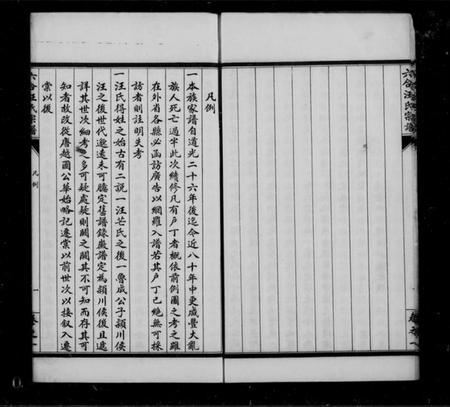 凡例
一本族家譜自道光二十六年後迄今近八十年中更咸豐大亂
族人死亡過半此次續修凡有戶丁者概依前例圖之考之雖
在外省各縣必函訪廣告以網羅入譜若其戶丁已絕無可採
訪者則註明失考
一汪氏得姓之始古有二說一汪芒氏之後一魯成公子潁川侯
汪之後世代邈遠未可臆定舊譜錄徽譜定為潁川侯後且遞
詳其世次細考之多可疑處疑則闕之闕其不可知而存其可
知者故改從唐越國公華始略記遷棠以前世次以接叙入遷
棠以後
六合汪氏宗譜
凡例
一
卷之一
六合汪氏宗譜